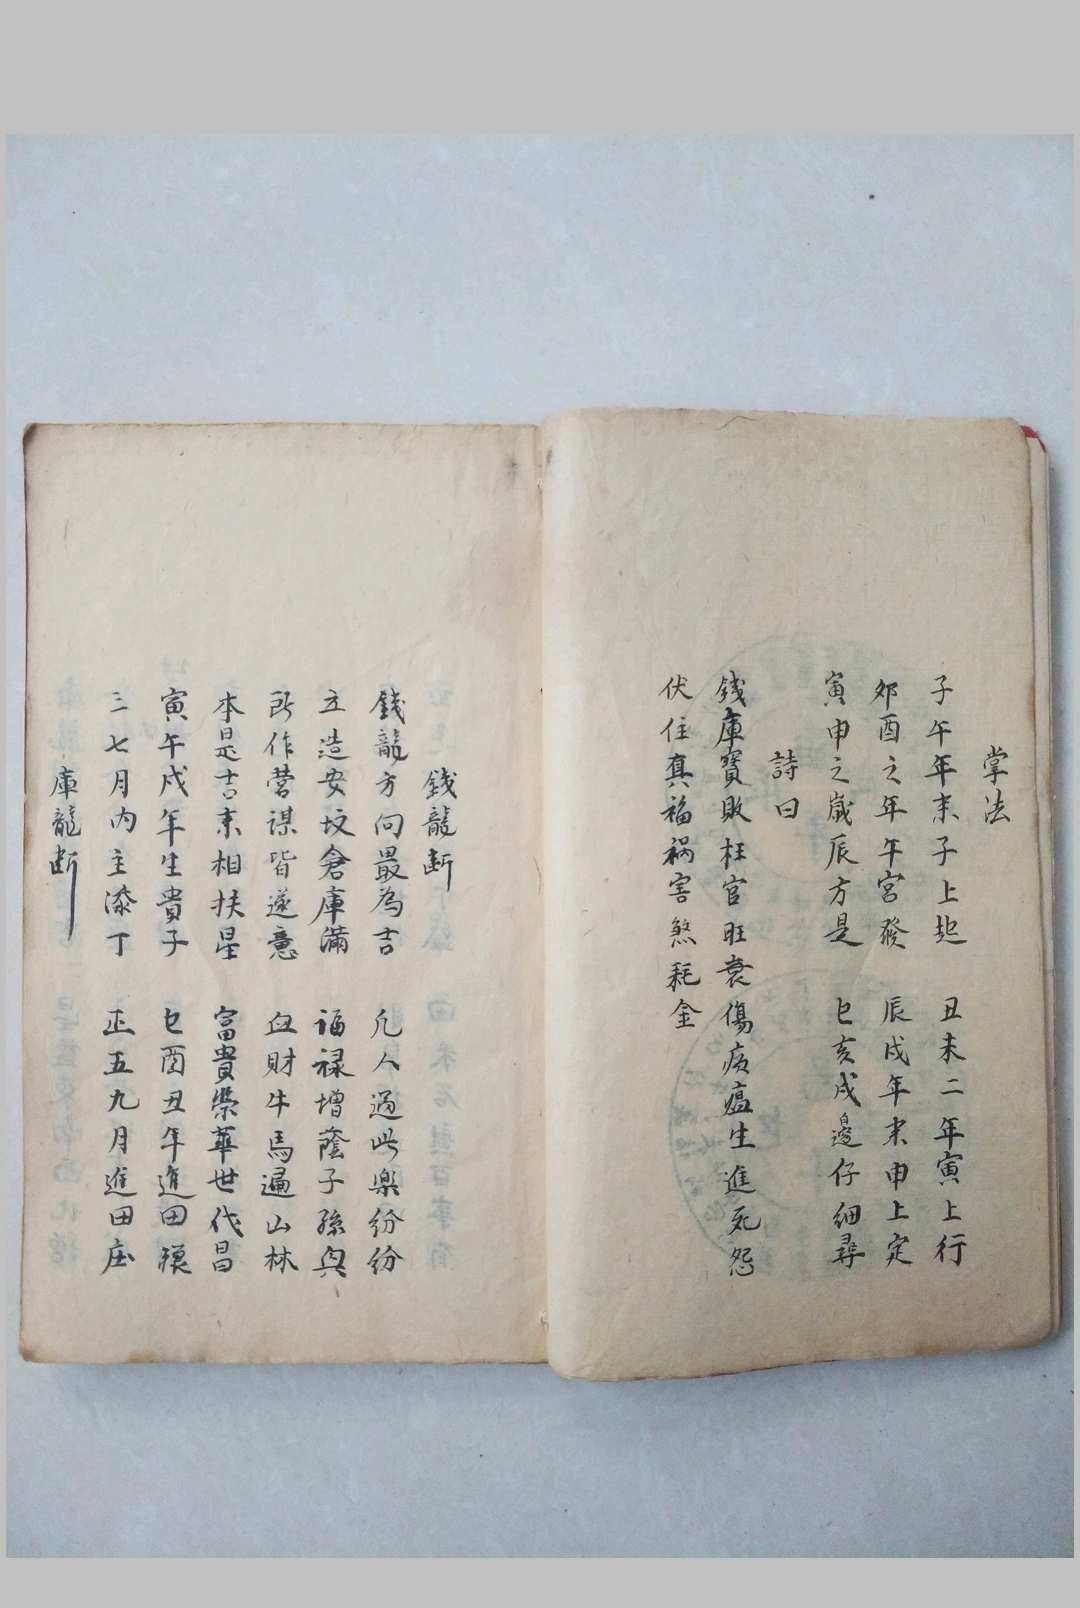 掌法
子午年来子上起 丑未二年寅上行
卯酉之年午宮發 辰戌年来申上定
寅申之歲辰方是 巳亥戌邊仔細尋
詩曰
錢庫寳敗枉官旺衰傷病瘟生進死怨
伏住真福祸害煞耗金
錢龍断
錢龍方向最為吉 凢人過此樂纷纷
立造安坟倉庫滿 福禄增蔭子孫興
所作营謀皆遂意 血財牛馬遍山林
本是吉来相扶星 富貴荣華世代昌
寅午戌年生貴子 巳酉丑年進田
三七月内主添丁 正五九月進田庄
庫龍断